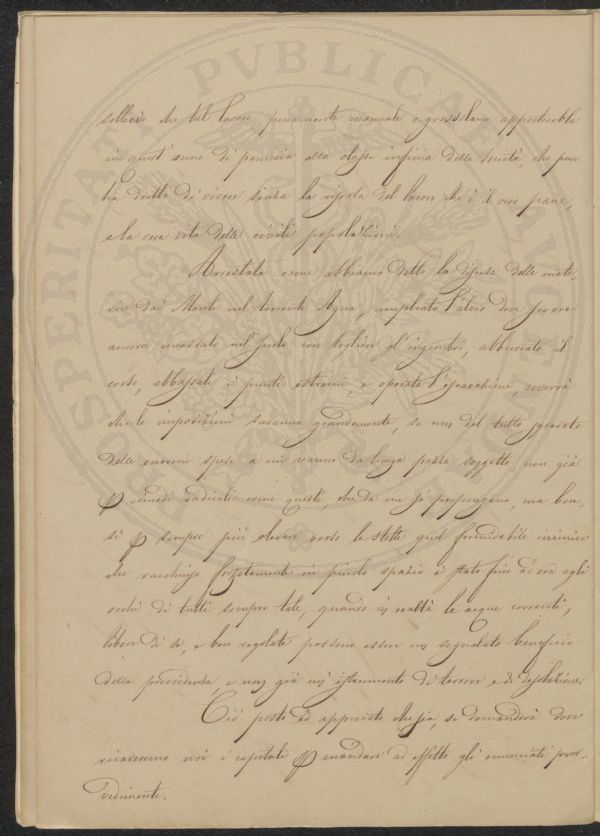 sollievo che tal lavoro, puramente manuale e grossolano apporterebbe
in quest'anno di penuria alla classe infima della società, che pur
ha dritto di vivere senza la risposta del lavoro che è il vero pane,
e la vera vita delle civili popolazioni.
Arrestata come abbiamo detto la discesa delle mate-
rie dai Monti nel torrente Agna, ampliato l'alveo dove scorre
ancora incassato nel suolo con togliere gl'ingombri, abbreviato il
corso, abbassati i punti estremi, e operata l'escavazione, avverrà
che le imposizioni saranno grandemente, se non del tutto sgravate
delle enormi spese a cui vanno da lunga pezza soggette non già
p rimedi radicali come questi, che da me si propongono, ma ben-
sì p sempre più elevare verso le stelle quel formidabile inimico
che racchiuso forzatamente in piccolo spazio è stato fino ad ora agli
occhi di tutti sempre tale, quando in realtà le acque correnti,
libere di se, e ben regolate possono essere un segnalato beneficio
della provvidenza, e non già un istrumento di terrore e di desolazione.
Ciò posto ed approvato che sia, si domanderà dove
ricaveremo noi i capitali p mandare ad effetto gli enunciati prov-
vedimenti.
PROSPERITATI PVBLICAE